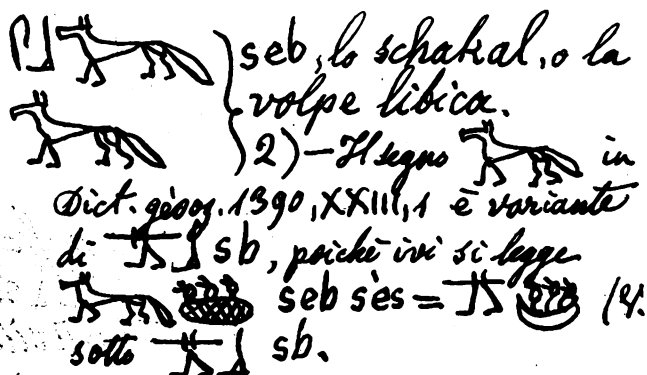 seb, lo schakal, o la
volpe libica.
2) — Il segno in
Dict. géog. 1390, XXIII, 1 è variante
di sb, poichè ivi si legge
seb sès = (V.
sotto sb.